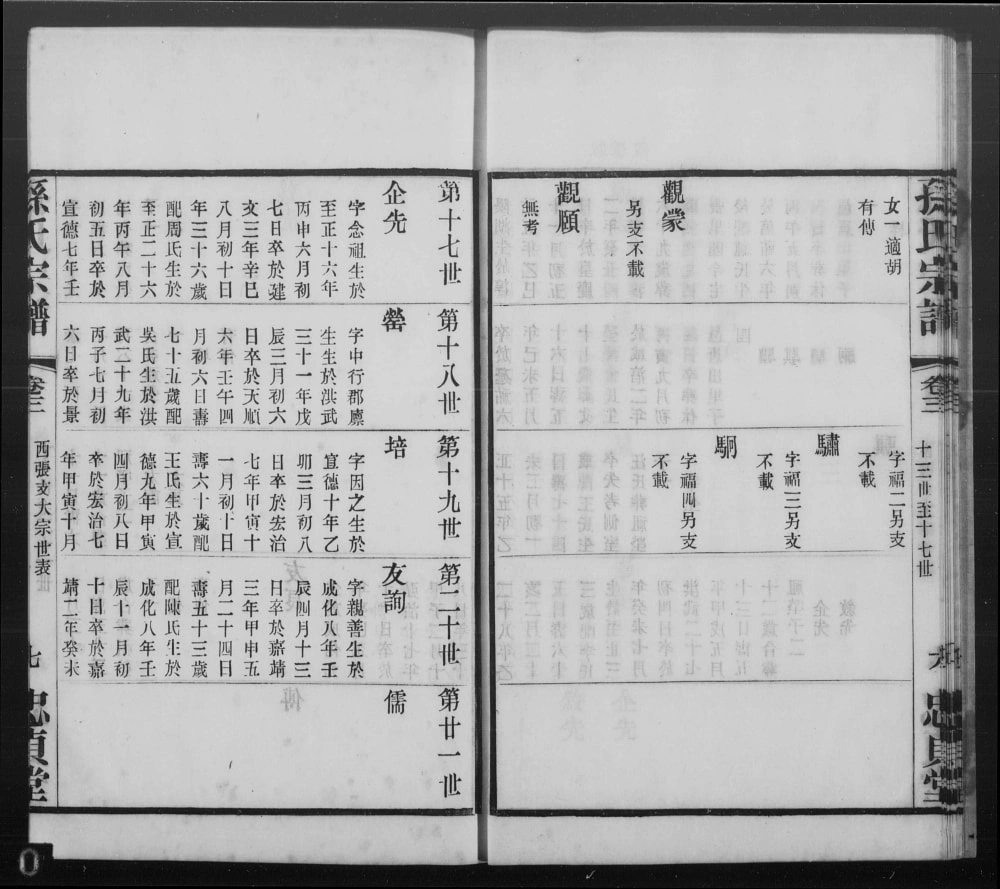 孫氏宗譜
卷三
十三世至十七世
忠貞堂
女一適胡
有傅
觀蒙
另支不載
觀願
無考
字福二另支
不載
驌
字福三另支
不載
駉
字福四另支
不載
第十七世
企先
字念祖生於
至正十六年
丙申六月初
七日卒於建
文三年辛巳
八月初十日
年三十六歲
配周氏生於
至正二十六
年丙午八月
初五日卒於
宣德七年壬
第十八世
罃
字中行郡廪
生生於洪武
三十一年戊
辰三月初六
日卒於天順
六年壬午四
月初六日壽
七十五歲配
吳氏生於洪
武二十九年
丙子七月初
六日卒於景
第十九世
培
字因之生於
宣德十年乙
卯三月初八
日卒於宏治
七年甲寅十
一月初十日
壽六十歲配
王氏生於宣
德九年甲寅
四月初八日
卒於宏治七
年甲寅十月
第二十世
友詢
字親善生於
成化八年壬
辰四月十三
日卒於嘉靖
三年甲申五
月二十四日
壽五十三歲
配陳氏生於
成化八年壬
辰十二月初
十日卒於嘉
靖二年癸未
第廿一世
儒
孫氏宗譜
卷三
西張支大宗世表
七
忠貞堂